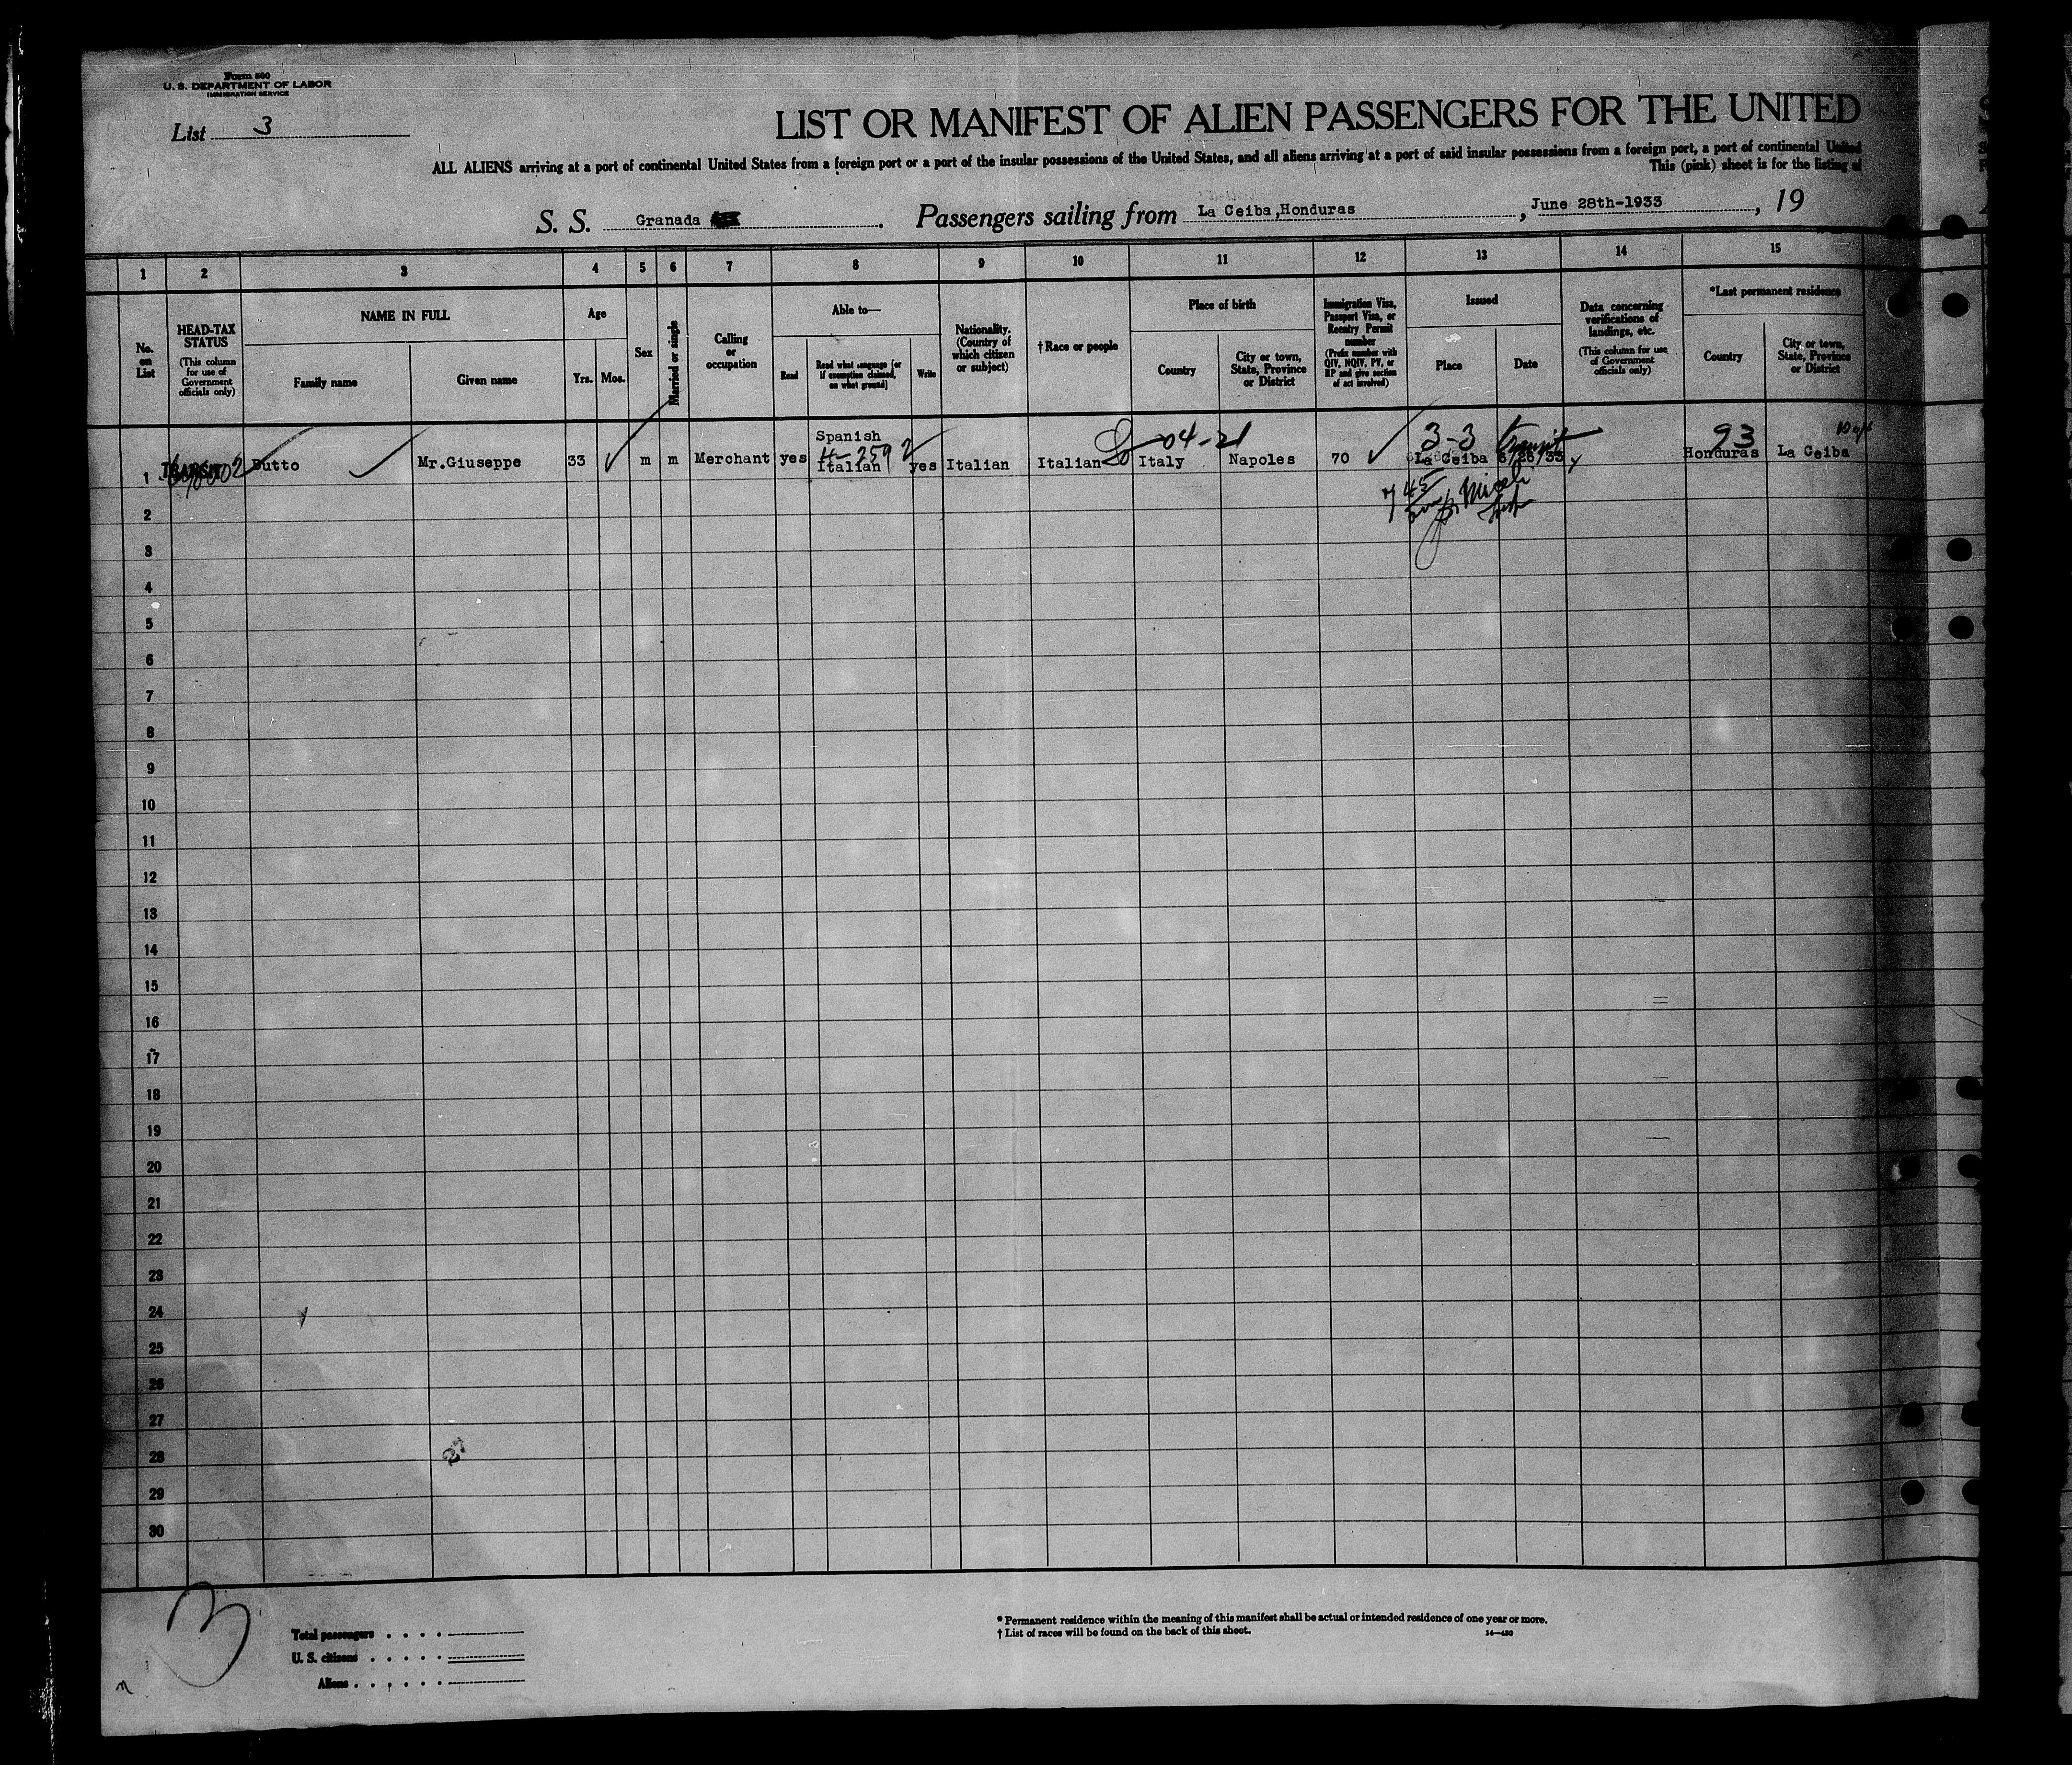 Form 500
U. S. DEPARTMENT OF LABOR
IMMIGRATION SERVICE
List 3
LIST OR MANIFEST OF ALIEN PASSENGERS FOR THE UNITED
ALL ALIENS arriving at a port of continental United States from a foreign port or a port of the insular possessions of the United States, and all aliens arriving at a port of said insular possessions from a foreign port, a port of continental United
This (pink) sheet is for the listing of
S. S. Granada . Passengers sailing from La Ceiba,Honduras , June 28th-1933 , 19
1 2 3 4 5 6 7 8 9 10 11 12 13 14 15
No. on List
HEAD-TAX STATUS
(This column for use of Government officials only)
NAME IN FULL
Family name
Given name
Age
Yrs.
Mos.
Sex
Married or single
Calling or occupation
Able to—
Read
Read what language [or if exemption claimed, on what ground]
Write
Nationality. (Country of which citizen or subject)
†Race or people
Place of birth
Country
City or town, State, Province or District
Immigration Visa, Passport Visa, or Reentry Permit number
(Prefix number with QIV, NQIV, PV, or RP and give section of act involved)
Issued
Place
Date
Data concerning verifications of landings, etc.
(This column for use of Government officials only)
*Last permanent residence
Country
City or town, State, Province or District
Spanish
04-21
3-3 transit
93
1 TRANSIT Dutto Mr.Giuseppe 33 m m Merchant yes Italian yes Italian Italian Italy Napoles 70 La Ceiba 6/26/33 Honduras La Ceiba
2
3
4
5
6
7
8
9
10
11
12
13
14
15
16
17
18
19
20
21
22
23
24
25
26
27
28
27
29
30
3
Total passengers
U. S. citizens
Aliens
* Permanent residence within the meaning of this manifest shall be actual or intended residence of one year or more.
† List of races will be found on the back of this sheet.
14—430